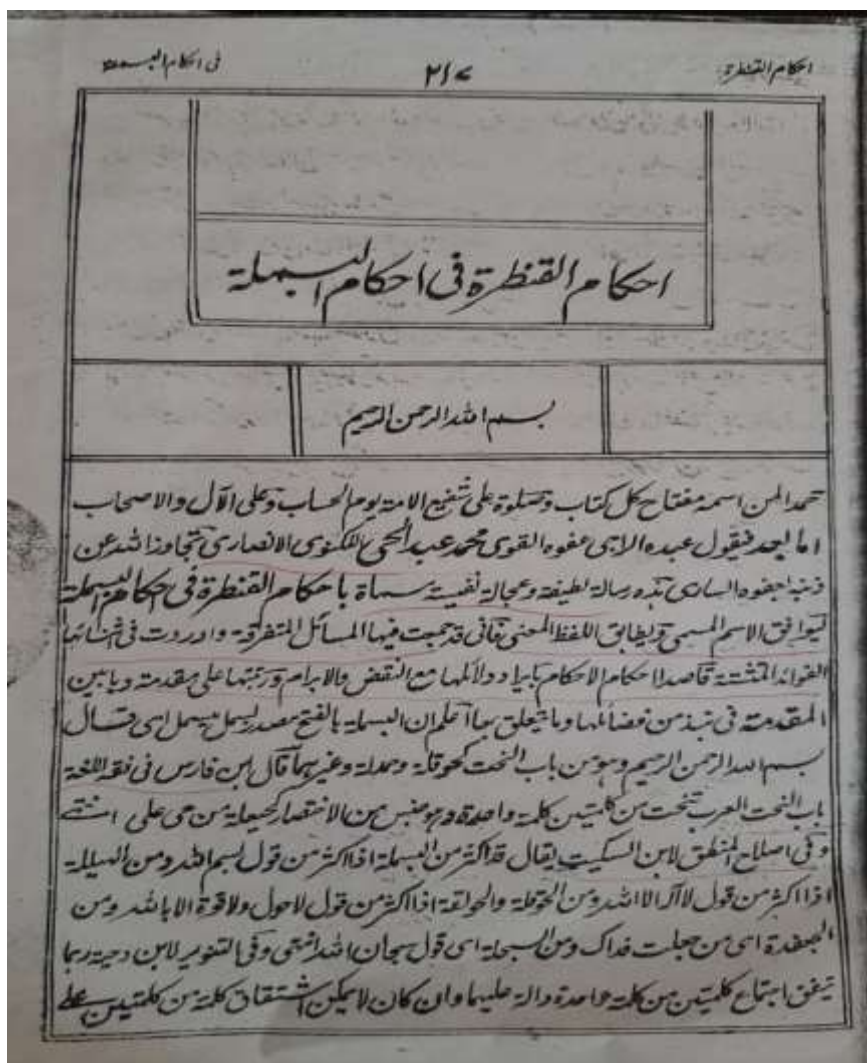 احكام القنطرة
٢١٧
فى احكام البسملة
احكام القنطرة فى احكام البسملة
بسم الله الرحمن الرحيم
حمدا لمن اسمه مفتاح كل كتاب وصلوة على شفيع الامة يوم الحساب وعلى الآل والاصحاب
اما بعد فيقول عبده الاجى عفوه القوى محمد عبد الحى اللكنوى الانصارى تجاوز الله عن
ذنبه بعفوه السارى هذه رسالة لطيفة وعجالة نفيسة مسماة باحكام القنطرة فى احكام البسملة
ليوافق الاسم المسمى ويطابق اللفظ المعنى فانى قد جمعت فيها المسائل المتفرقة واوردت فى اثنائها
الفوائد المتشتتة قاصدا احكام الاحكام بايراد دلائلها مع النقض والابرام ورتبتها على مقدمة وبابين
المقدمة فى نبذ من فضائلها وما يتعلق بها اعلم ان البسملة بالفتح مصدر بسمل يبسمل اى قال
بسم الله الرحمن الرحيم وهو من باب النحت كحوقلة وحمدلة وغيرهما قال ابن فارس فى فقه اللغة
باب النحت العرب تنحت من كلمتين كلمة واحدة وهو جنس من الاختصار كحيعلة من حى على انتهى
وفى اصلاح المنطق لابن السكيت يقال قد اكثر من البسملة اذا اكثر من قول بسم الله ومن الهيللة
اذا اكثر من قول لا اله الا الله ومن الحوقلة والحولقة اذا اكثر من قول لا حول ولا قوة الا بالله ومن
الجعفدة اى من جعلت فداك ومن السبحلة اى قول سبحان الله انتهى وفى التنوير لابن دحية ربما
يتفق اجتماع كلمتين من كلمة واحدة دالة عليهما وان كان لا يمكن اشتقاق كلمة من كلمتين على